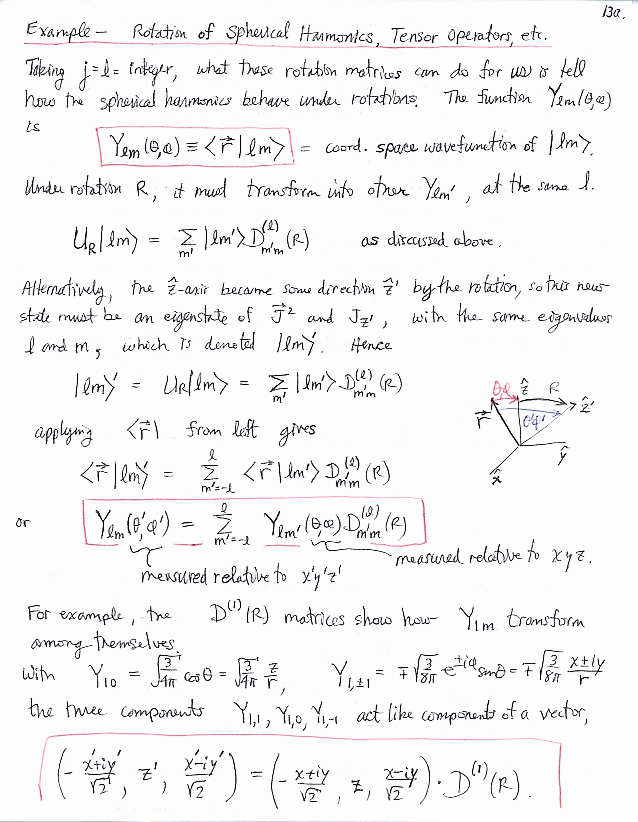 13a.
Example – Rotation of Spherical Harmonics, Tensor Operators, etc.
Taking j = l = integer, what these rotation matrices can do for us is tell
how the spherical harmonics behave under rotations. The function Yₗₘ(θ,φ)
is
Yₗₘ(θ,φ) ≡ ⟨r⃗|lm⟩ = coord. space wavefunction of |lm⟩.
Under rotation R, it must transform into other Yₗₘ', at the same l.
U_R|lm⟩ = Σ_{m'} |lm'⟩D^{(l)}_{m'm}(R) as discussed above.
Alternatively, the ẑ-axis became some direction ẑ' by the rotation, so this new
state must be an eigenstate of J⃗² and J_{z'}, with the same eigenvalues
l and m, which is denoted |lm⟩'. Hence
|lm⟩' = U_R|lm⟩ = Σ_{m'} |lm'⟩D^{(l)}_{m'm}(R)
θ,φ ẑ R ẑ'
r⃗ θ'φ'
x̂ ŷ
applying ⟨r⃗| from left gives
⟨r⃗|lm⟩' = Σ_{m'=-l}^{l} ⟨r⃗|lm'⟩ D^{(l)}_{m'm}(R)
or Yₗₘ(θ',φ') = Σ_{m'=-l}^{l} Yₗₘ'(θ,φ)D^{(l)}_{m'm}(R)
measured relative to xyz.
measured relative to x'y'z'
For example, the D^{(1)}(R) matrices show how Y_{1m} transform
among themselves.
with Y_{10} = √(3/4π) cosθ = √(3/4π) z/r, Y_{1,±1} = ∓√(3/8π) e^{±iφ} sinθ = ∓√(3/8π) (x±iy)/r
the three components Y_{1,1}, Y_{1,0}, Y_{1,-1} act like components of a vector,
(-(x'+iy')/√2, z', (x'-iy')/√2) = (-(x+iy)/√2, z, (x-iy)/√2) · D^{(1)}(R).